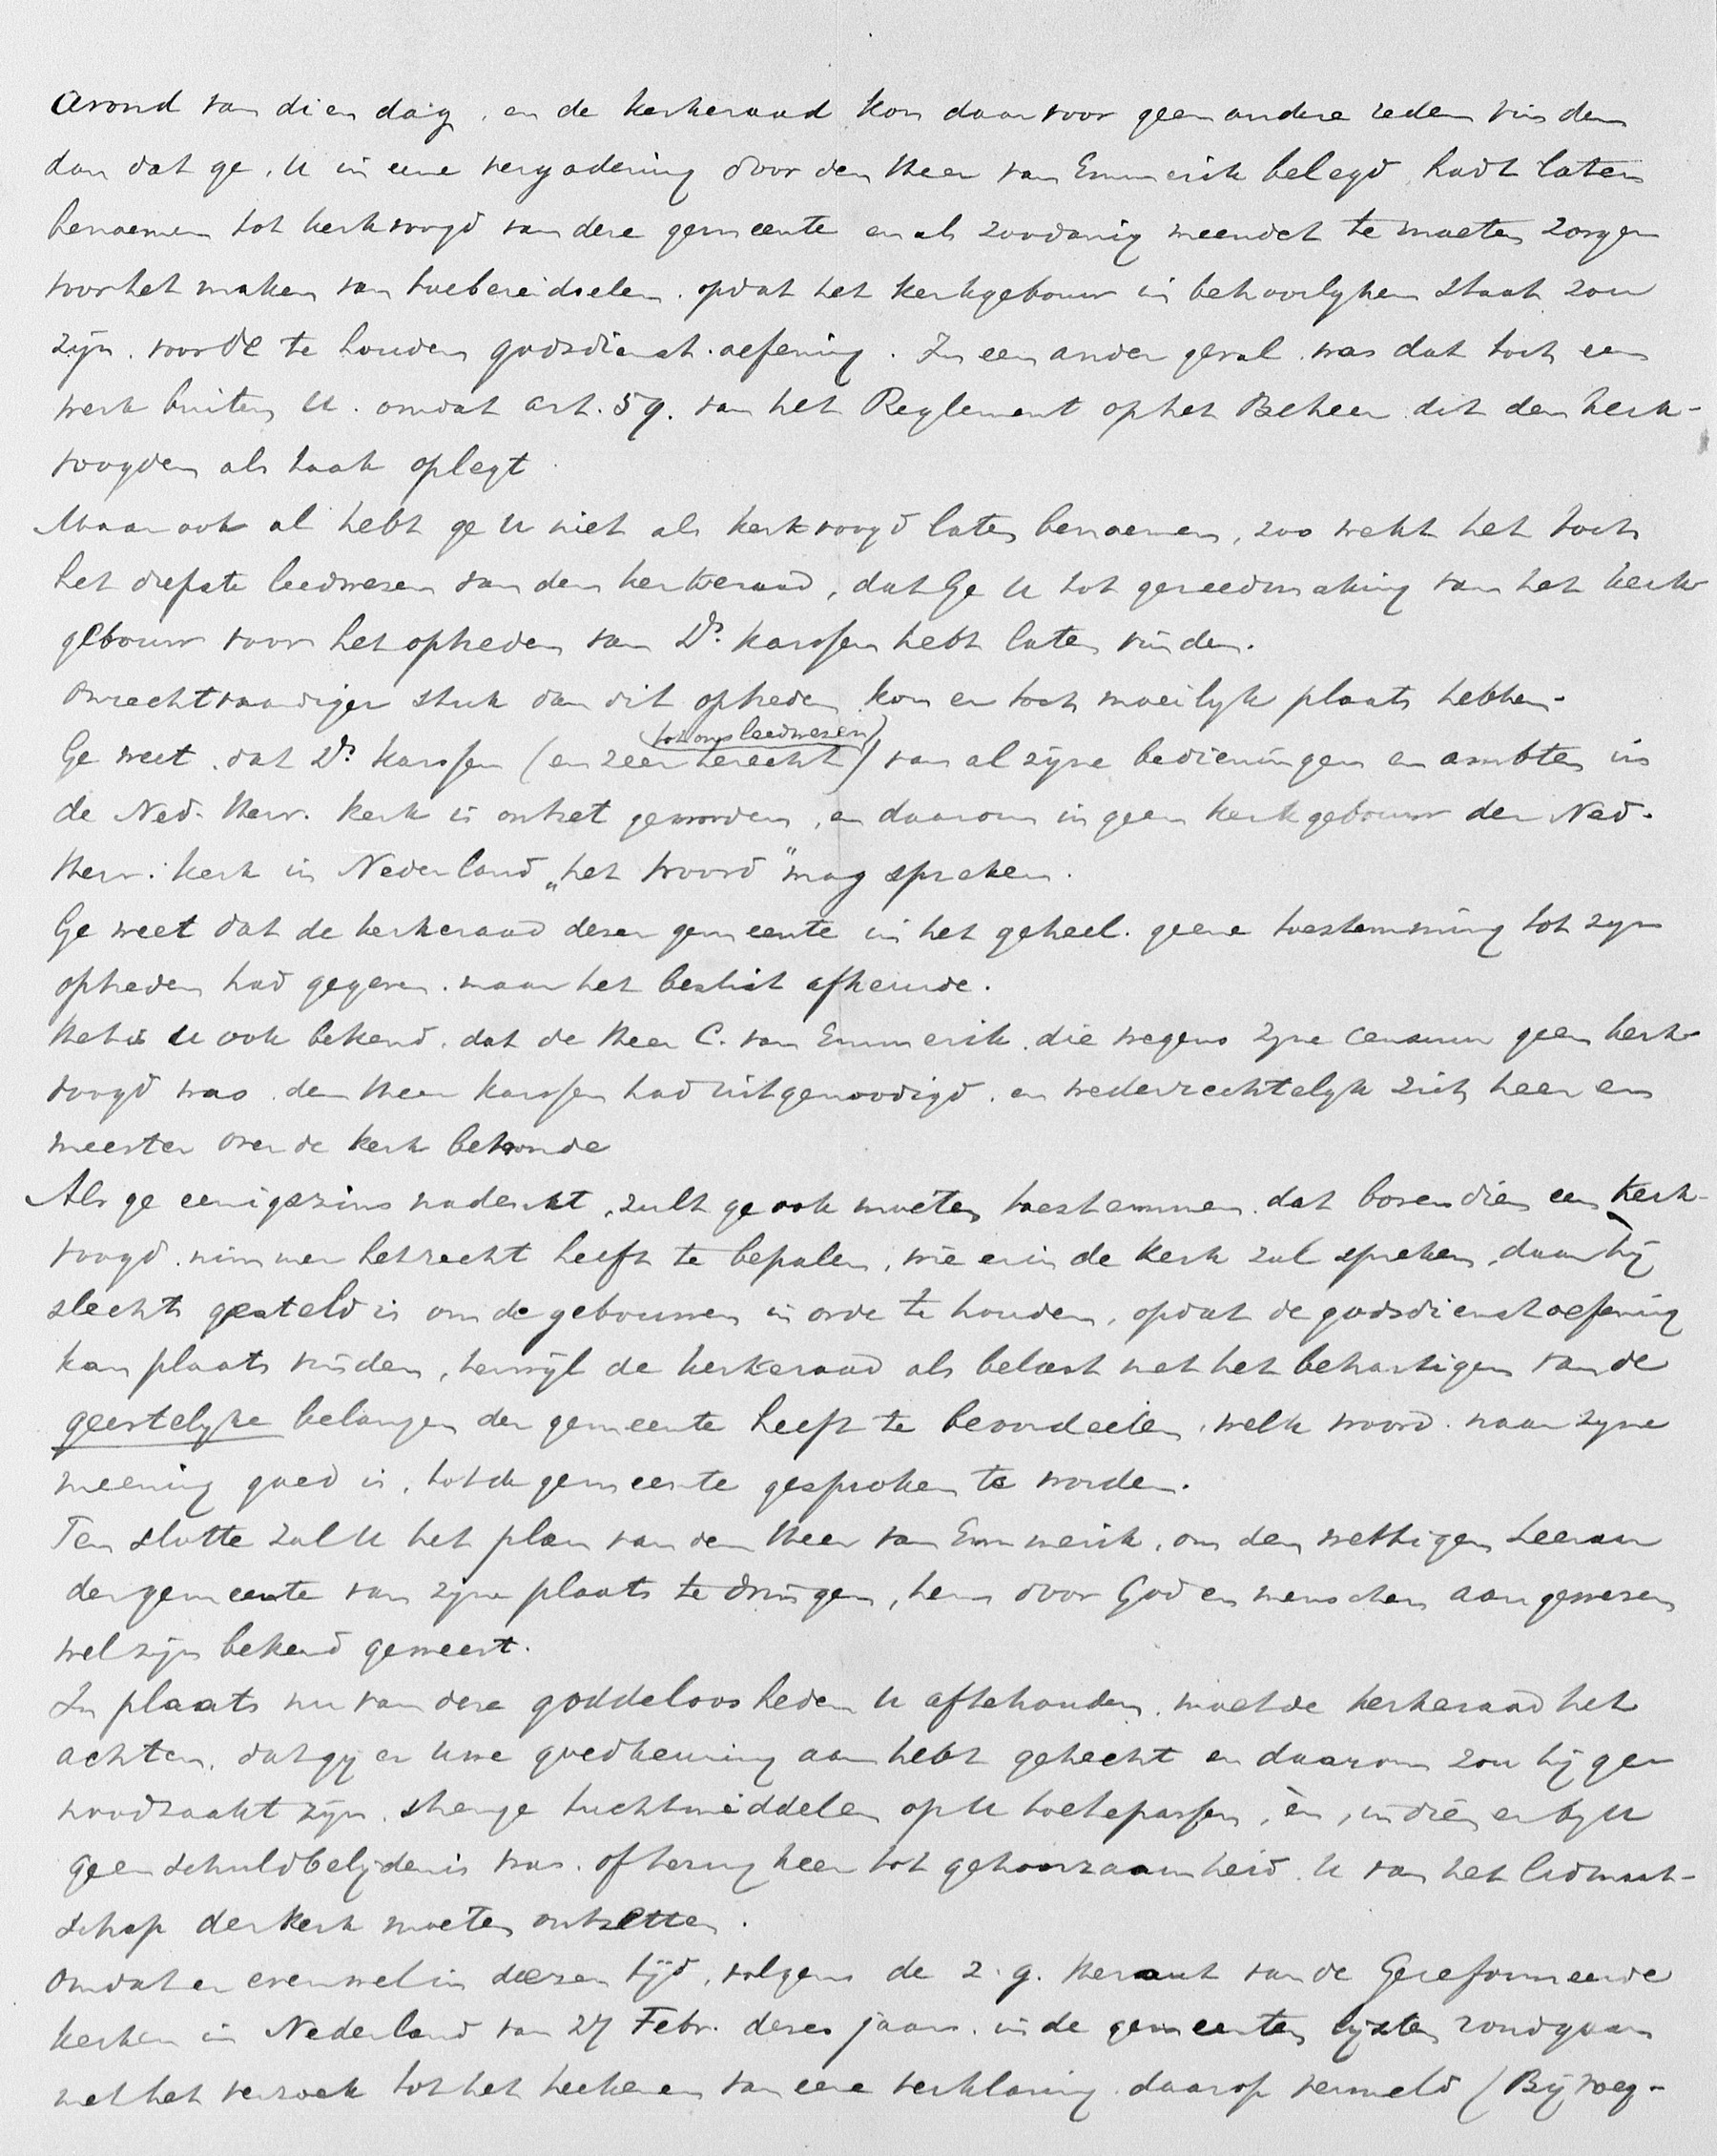 avond van dien dag, en de kerkeraad kon daarvoor geen andere reden vinden
dan dat ge, U in eene vergadering door den Heer van Emmerik belegd, hadt laten
benoemen tot kerkvoogd van deze gemeente en als zoodanig meendet te moeten zorgen
voor het maken van toebereidselen. opdat het kerkgebouw in behoorlyken staat zou
zijn. voor de te houden godsdienst.oefening. In een ander geval was dat toch een
werk buiten U. omdat art. 59. van het Reglement op het Beheer dit den kerk-
voogden als taak oplegt.
Maar ook al hebt ge U niet als kerkvoogd laten benoemen, zoo wekt het toch
het diepste leedwezen van den kerkeraad, dat Ge U tot gereedmaking van het kerk-
gebouw voor het optreden van Ds. Karssen hebt laten vinden.
Onrechtvaardiger stuk dan dit optreden kon er toch moeilyk plaats hebben.
(tot ons leedwezen)
Ge weet, dat Ds. Karssen (en zeer terecht) van al zyne bedieningen en ambten in
de Ned. Herv. kerk is ontzet geworden, en daarom in geen kerkgebouw der Ned.
Herv. kerk in Nederland „het woord" mag spreken.
Ge weet dat de kerkeraad dezer gemeente in het geheel. geene toestemming tot zyn
optreden had gegeven. maar het beslist afkeurde.
Het is U ook bekend, dat de Heer C. van Emmerik, die wegens zyne censuur geen kerk-
voogd was. den Heer Karssen had uitgenoodigd. en wederrechtelyk zich heer en
meester over de kerk betoonde
Als ge eenigszins nadenkt, zult ge ook moeten toestemmen. dat bovendien een kerk-
voogd. nimmer het recht heeft te bepalen, wie er in de kerk zal spreken, daar hij
slechts gesteld is om de gebouwen in orde te houden, opdat de godsdienstoefening
kan plaats vinden, terwyl de kerkeraad als belast met het behartigen van de
geestelyke belangen der gemeente heeft te beoordeelen, welk woord. naar zyne
meening goed is, tot de gemeente gesproken te worden.
Ten slotte zal U het plan van den Heer van Emmerik, om den wettigen Leeraar
der gemeente van zyne plaats te dringen, hem door God en menschen aangewezen
wel zijn bekend geweest.
In plaats nu van deze goddeloosheden U aftehouden. moet de kerkeraad het
achten, dat gy er Uwe goedkeuring aan hebt gehecht en daarom zou hij ge-
noodzaakt zijn. strenge tuchtmiddelen op U toetepassen, èn, indien er by U
geen schuldbelydenis was. of terugkeer tot gehoorzaamheid. U van het lidmaat-
schap der kerk moeten ontzetten.
Omdat er evenwel in dezen tijd, volgens de z.g. Heraut van de Gereformeerde
kerken in Nederland van 27 Febr. dezes jaars. in de gemeenten lijsten rondgaan
met het verzoek tot het teekenen van eene verklaring daarop vermeld (Bijvoeg-